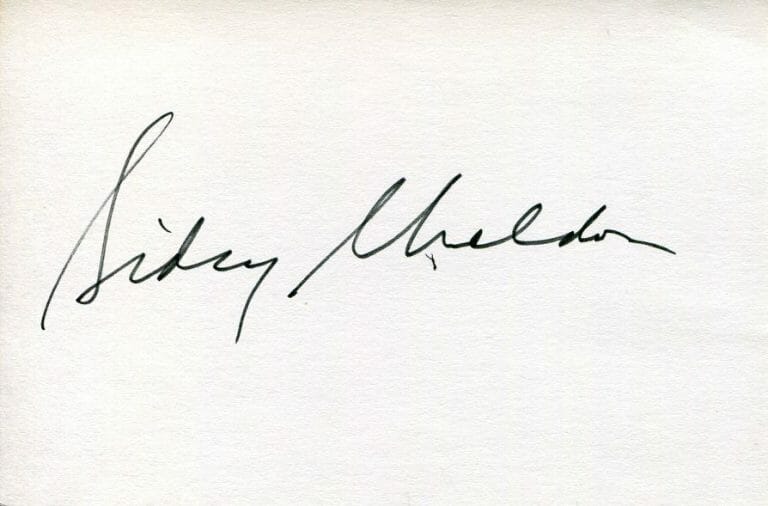 Sidney Sheldon